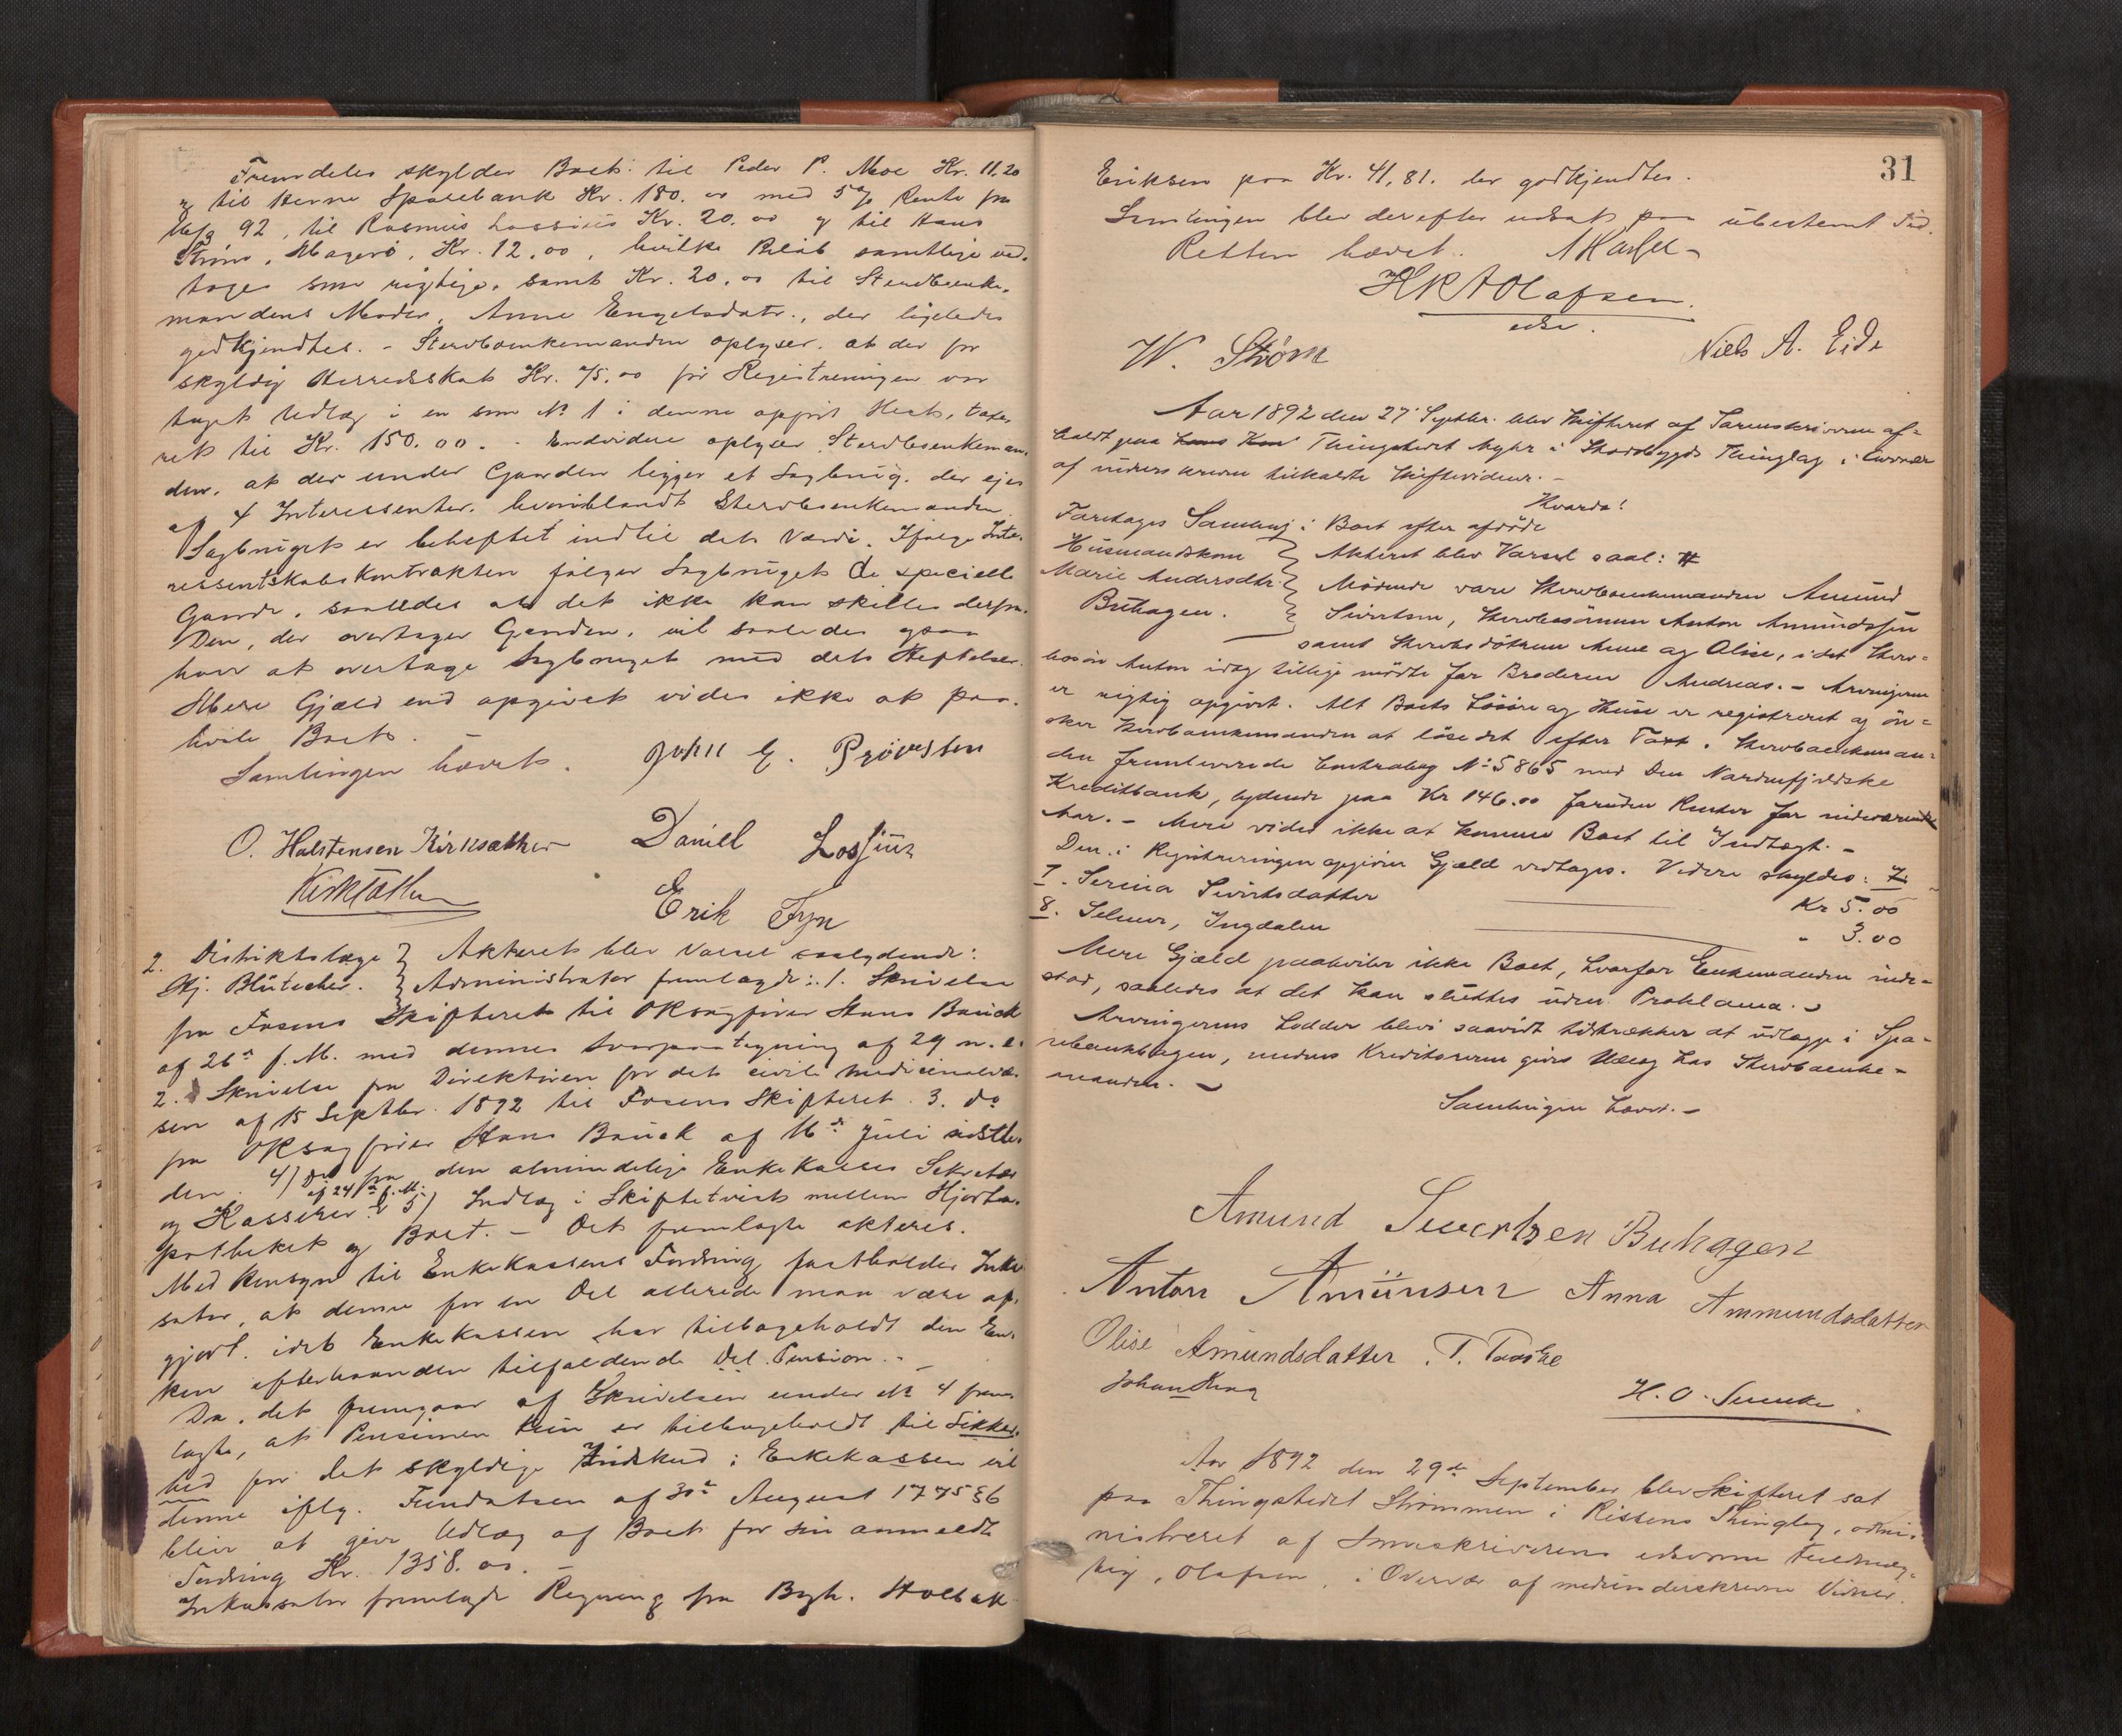 Fremdeles skylder Boet: til Peder P. Moe Kr. 11,20
og til Herne Sparebank Kr. 180.00 med 5% Rente fra
16/9 92, til Rasmus Lossius Kr. 20.00 og til Hans
Magerö, Kr. 12,00, hvilke Beløb samtlige ved-
toges som rigtige, samt Kr. 20.00 til Stervboenke-
mandens Moder, Anne Engelsdatr., der ligeledes
godkjendtes. - Stervboenkemanden oplyser, at der for
skyldig Herredsskat Kr. 75,00 før Registreringen var
taget Udlæg i en som No 1 i denne opført Hest, taxe-
ret til Kr. 150.00. - Endvidere oplyser Stervboenkeman-
den, at der under Gaarden ligger et Sagbrug, der ejes
af 4 Interessenter, hvoriblandt Stervboenkemanden.
Sagbruget er beheftet indtil dets Værdi. Ifølge Inte-
ressentskabskontrakten følger Sagbruget de specielle
Gaarde, saaledes at det ikke kan skilles derfra.
Den, der overtager Gaarden, vil saaledes ogsaa
have at overtage Sagbruget med dets Heftelser.
Mere Gjæld end opgivet vides ikke at paa-
hvile Boet.
Samlingen hævet. John E. Prövesten
O. Halstensen Kirksæther Daniel Lossius
Kirksæther
Erik Fyn
2. Distriktslæge } Akteret blev Varsel saalydende:
Hj. Blütecher. } Administrator fremlagde: 1. Skrivelse
fra Fosens Skifteret til OKsagfører Hans Bauck
af 26de f. M. med dennes Svarpaategning af 29 n. e.
2. Skrivelse fra Direktören for det civile Medicinalvæ-
sen af 15 Septbr. 1892 til Fosens Skifteret. 3. do
fra OKsagfører Hans Bauck af 16de Juli sidstle-
den. 4) Do fra den almindelige Enkekasses Sekretær
og Kasserer af 24de f. M. & 5) Indlæg i Skiftetvist mellem Hjorte-
potheket og Boet. - Det fremlagte akteres.
Med Hensyn til Enkekassens Fordring fastholder Inkas-
sator, at denne for en Del allerede maa være op-
gjort, idet Enkekassen har tilbageholdt den En-
ken efterhaanden tilfaldende Del Pension. -
Da det fremgaar af Skrivelsen under No 4 frem-
lagte, at Pensionen kun er tilbageholdt til Sikker-
hed for det skyldige Indskud i Enkekassen vil
denne iflg. Fundatsen af 30te August 1775 §6
blive at give Udlæg af Boet for sin anmeldte
Fordring Kr. 1358.00. -
Inkassator fremlagde Regning fra Bgh. Holbæk
31
Eriksen paa Kr. 41,81. der godkjendtes.
Samlingen blev derefter udsat paa ubestemt Tid.
Retten hævet.
HKAOlafsen.
edsv.
W. Ström Niels A. Eide
Aar 1892 den 27 Septbr. blev Skifteret af Sorenskriveren af-
holdt paa Thingstedet Myhr i Stadsbygds Thinglag i Overvær
af underskrevne tilkaldte Skiftevidner. -
Hvorda:
Foretages Samling i Boet efter afdöde
Husmandskone } Akteret blev Varsel saal: #
Marie Andersdtr. } Mödende vare Stervboenkemanden Amund
Buhagen. } Sivertsen, Stervbosönnen Anton Amundssen
samt Stervbodötrene Anne og Olise, idet Sterv-
bosön Anton idag tillige mödte for Broderen Andreas. - Arvingerne
er rigtig opgivet. Alt Boets Lösöre og Huse er registreret og ön-
sker Stervboenkemanden at löse det efter Taxt. Stervboenkeman-
den fremleverede Contrabog No 5865 med Den Nordenfjeldske
Kreditbank, lydende paa Kr 146.00 foruden Renter for nuværende
Aar. - Mere vides ikke at komme Boet til Indtægt. -
Den i Registreringen opgivne Gjæld vedtages. Videre skyldes: 7.
7. Serina Sivertsdatter Kr 5.00
8. Selmer, Ingdalen " 3.00
Mere Gjæld paahviler ikke Boet, hvorfor Enkemanden inde-
stod, saaledes at det kan sluttes uden Proklama. -
Arvingernes Lodder blive saavidt tilstrækker at udlægge i Spa-
rebankbogen, medens Kreditorerne gives Udlæg hos Stervboenke-
manden. -
Samlingen hævet. -
Amund Siuertsen Buhagen
Anton Amünsen Anna Ammundsdatter
Olise Amundsdatter. T.
Johan H. O.
Aar 1892 den 29de September blev Skifteret sat
paa Thingstedet Strømmen i Rissens Thinglag, admi-
nistreret af Sorenskriverens edsvorne Fuldmæg-
tig, Olafsen, i Overvær af medunderskrevne Vidner.